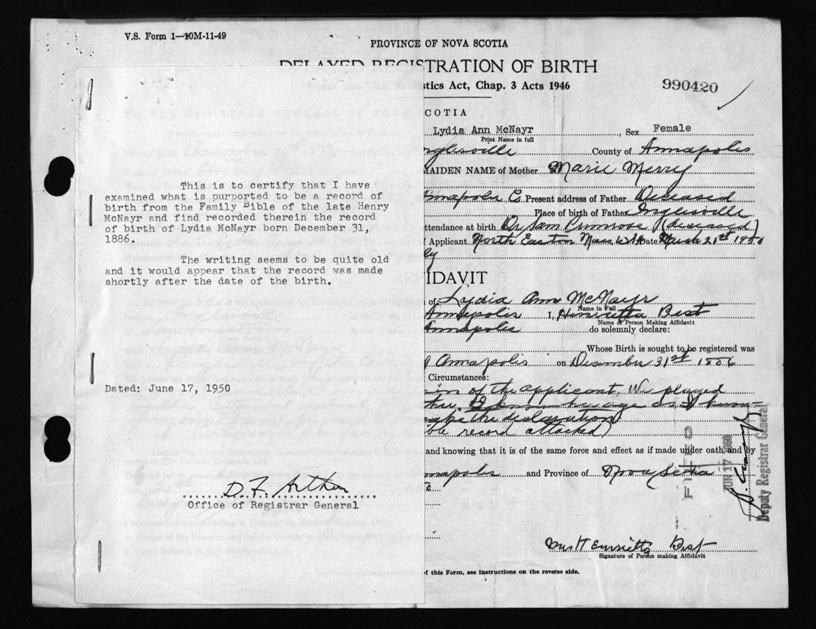 V.S. Form 1—10M-11-49
PROVINCE OF NOVA SCOTIA
DELAYED REGISTRATION OF BIRTH
tics Act, Chap. 3 Acts 1946
990420
COTIA
Lydia Ann McNayr, Sex Female
Print Name in full
County of Annapolis
MAIDEN NAME of Mother Marie Merry
Present address of Father Deceased
Place of birth of Father Inglesville
ttendance at birth Dr Sam Primrose (deceased)
f Applicant North Easton Mass USA Date March 21st 1950
This is to certify that I have
examined what is purported to be a record of
birth from the Family Bible of the late Henry
McNayr and find recorded therein the record
of birth of Lydia McNayr born December 31,
1886.
The writing seems to be quite old
and it would appear that the record was made
shortly after the date of the birth.
Dated: June 17, 1950
D. F. Arthur
Office of Registrar General
IDAVIT
of Lydia Ann McNayr
Name in Full
Annapolis I, Henrietta Best
Name of Person Making Affidavit
Annapolis do solemnly declare:
Whose Birth is sought to be registered was
Annapolis on December 31st 1886
Circumstances:
of the applicant. We played
the declaration
ble record attached)
and knowing that it is of the same force and effect as if made under oath and by
nnapolis and Province of Nova Scotia
FILED
JUN 17 1950
Deputy Registrar General
Mrs Henrietta Best
Signature of Person making Affidavit
of this Form, see instructions on the reverse side.